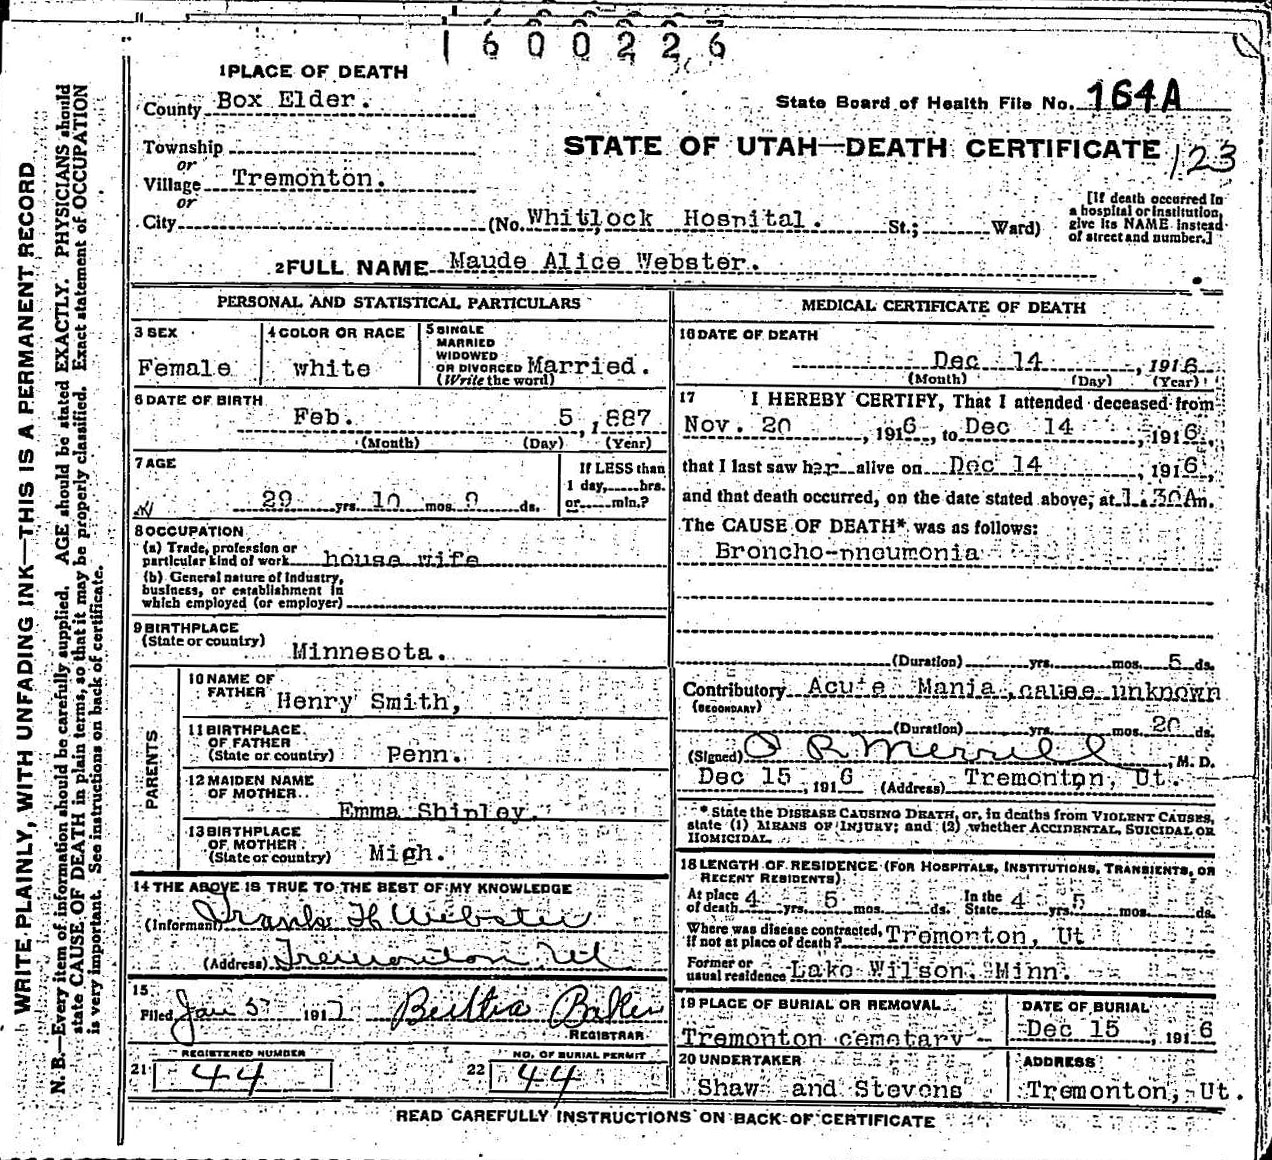 1600226
1 PLACE OF DEATH
County Box Elder.
State Board of Health File No. 164A
Township
STATE OF UTAH—DEATH CERTIFICATE 123
or
Village Tremonton.
or
City (No. Whitlock Hospital. St.; Ward)
[If death occurred in
a hospital or institution,
give its NAME instead
of street and number.]
2 FULL NAME Maude Alice Webster.
PERSONAL AND STATISTICAL PARTICULARS
3 SEX
Female
4 COLOR OR RACE
white
5 SINGLE
MARRIED
WIDOWED
OR DIVORCED Married.
(Write the word)
6 DATE OF BIRTH
Feb. 5, 1887
(Month) (Day) (Year)
7 AGE
29 yrs. 10 mos. 9 ds.
If LESS than
1 day, hrs.
or min.?
8 OCCUPATION
(a) Trade, profession or
particular kind of work house wife
(b) General nature of Industry,
business, or establishment in
which employed (or employer)
9 BIRTHPLACE
(State or country) Minnesota.
PARENTS
10 NAME OF
FATHER Henry Smith,
11 BIRTHPLACE
OF FATHER
(State or country) Penn.
12 MAIDEN NAME
OF MOTHER
Emma Shipley.
13 BIRTHPLACE
OF MOTHER
(State or country) Migh.
14 THE ABOVE IS TRUE TO THE BEST OF MY KNOWLEDGE
(Informant) Frank H Webster
(Address) Tremonton, Ut
15
Filed Jan 5 1917 Bertha Baker
REGISTRAR
REGISTERED NUMBER
21 44
NO. OF BURIAL PERMIT
22 44
MEDICAL CERTIFICATE OF DEATH
16 DATE OF DEATH
Dec 14, 1916
(Month) (Day) (Year)
17 I HEREBY CERTIFY, That I attended deceased from
Nov. 20, 1916, to Dec 14, 1916,
that I last saw her alive on Dec 14, 1916,
and that death occurred, on the date stated above, at 1.30Am.
The CAUSE OF DEATH* was as follows:
Broncho-pneumonia
(Duration) yrs. mos. 5 ds.
Contributory Acute Mania, cause unknown
(SECONDARY)
(Duration) yrs. mos. 20 ds.
(Signed) O R Merrill, M. D.
Dec 15, 1916 (Address) Tremonton, Ut.
* State the DISEASE CAUSING DEATH, or, in deaths from VIOLENT CAUSES,
state (1) MEANS OF INJURY; and (2) whether ACCIDENTAL, SUICIDAL OR
HOMICIDAL.
18 LENGTH OF RESIDENCE (FOR HOSPITALS, INSTITUTIONS, TRANSIENTS, OR
RECENT RESIDENTS)
At place
of death 4 yrs. 5 mos. ds.
In the
State 4 yrs. 5 mos. ds.
Where was disease contracted,
if not at place of death? Tremonton, Ut
Former or
usual residence Lake Wilson, Minn.
19 PLACE OF BURIAL OR REMOVAL
Tremonton cemetary
DATE OF BURIAL
Dec 15, 1916
20 UNDERTAKER
Shaw and Stevens
ADDRESS
Tremonton, Ut.
READ CAREFULLY INSTRUCTIONS ON BACK OF CERTIFICATE
WRITE PLAINLY, WITH UNFADING INK—THIS IS A PERMANENT RECORD
N. B.—Every item of information should be carefully supplied. AGE should be stated EXACTLY. PHYSICIANS should
state CAUSE OF DEATH in plain terms, so that it may be properly classified. Exact statement of OCCUPATION
is very important. See instructions on back of certificate.